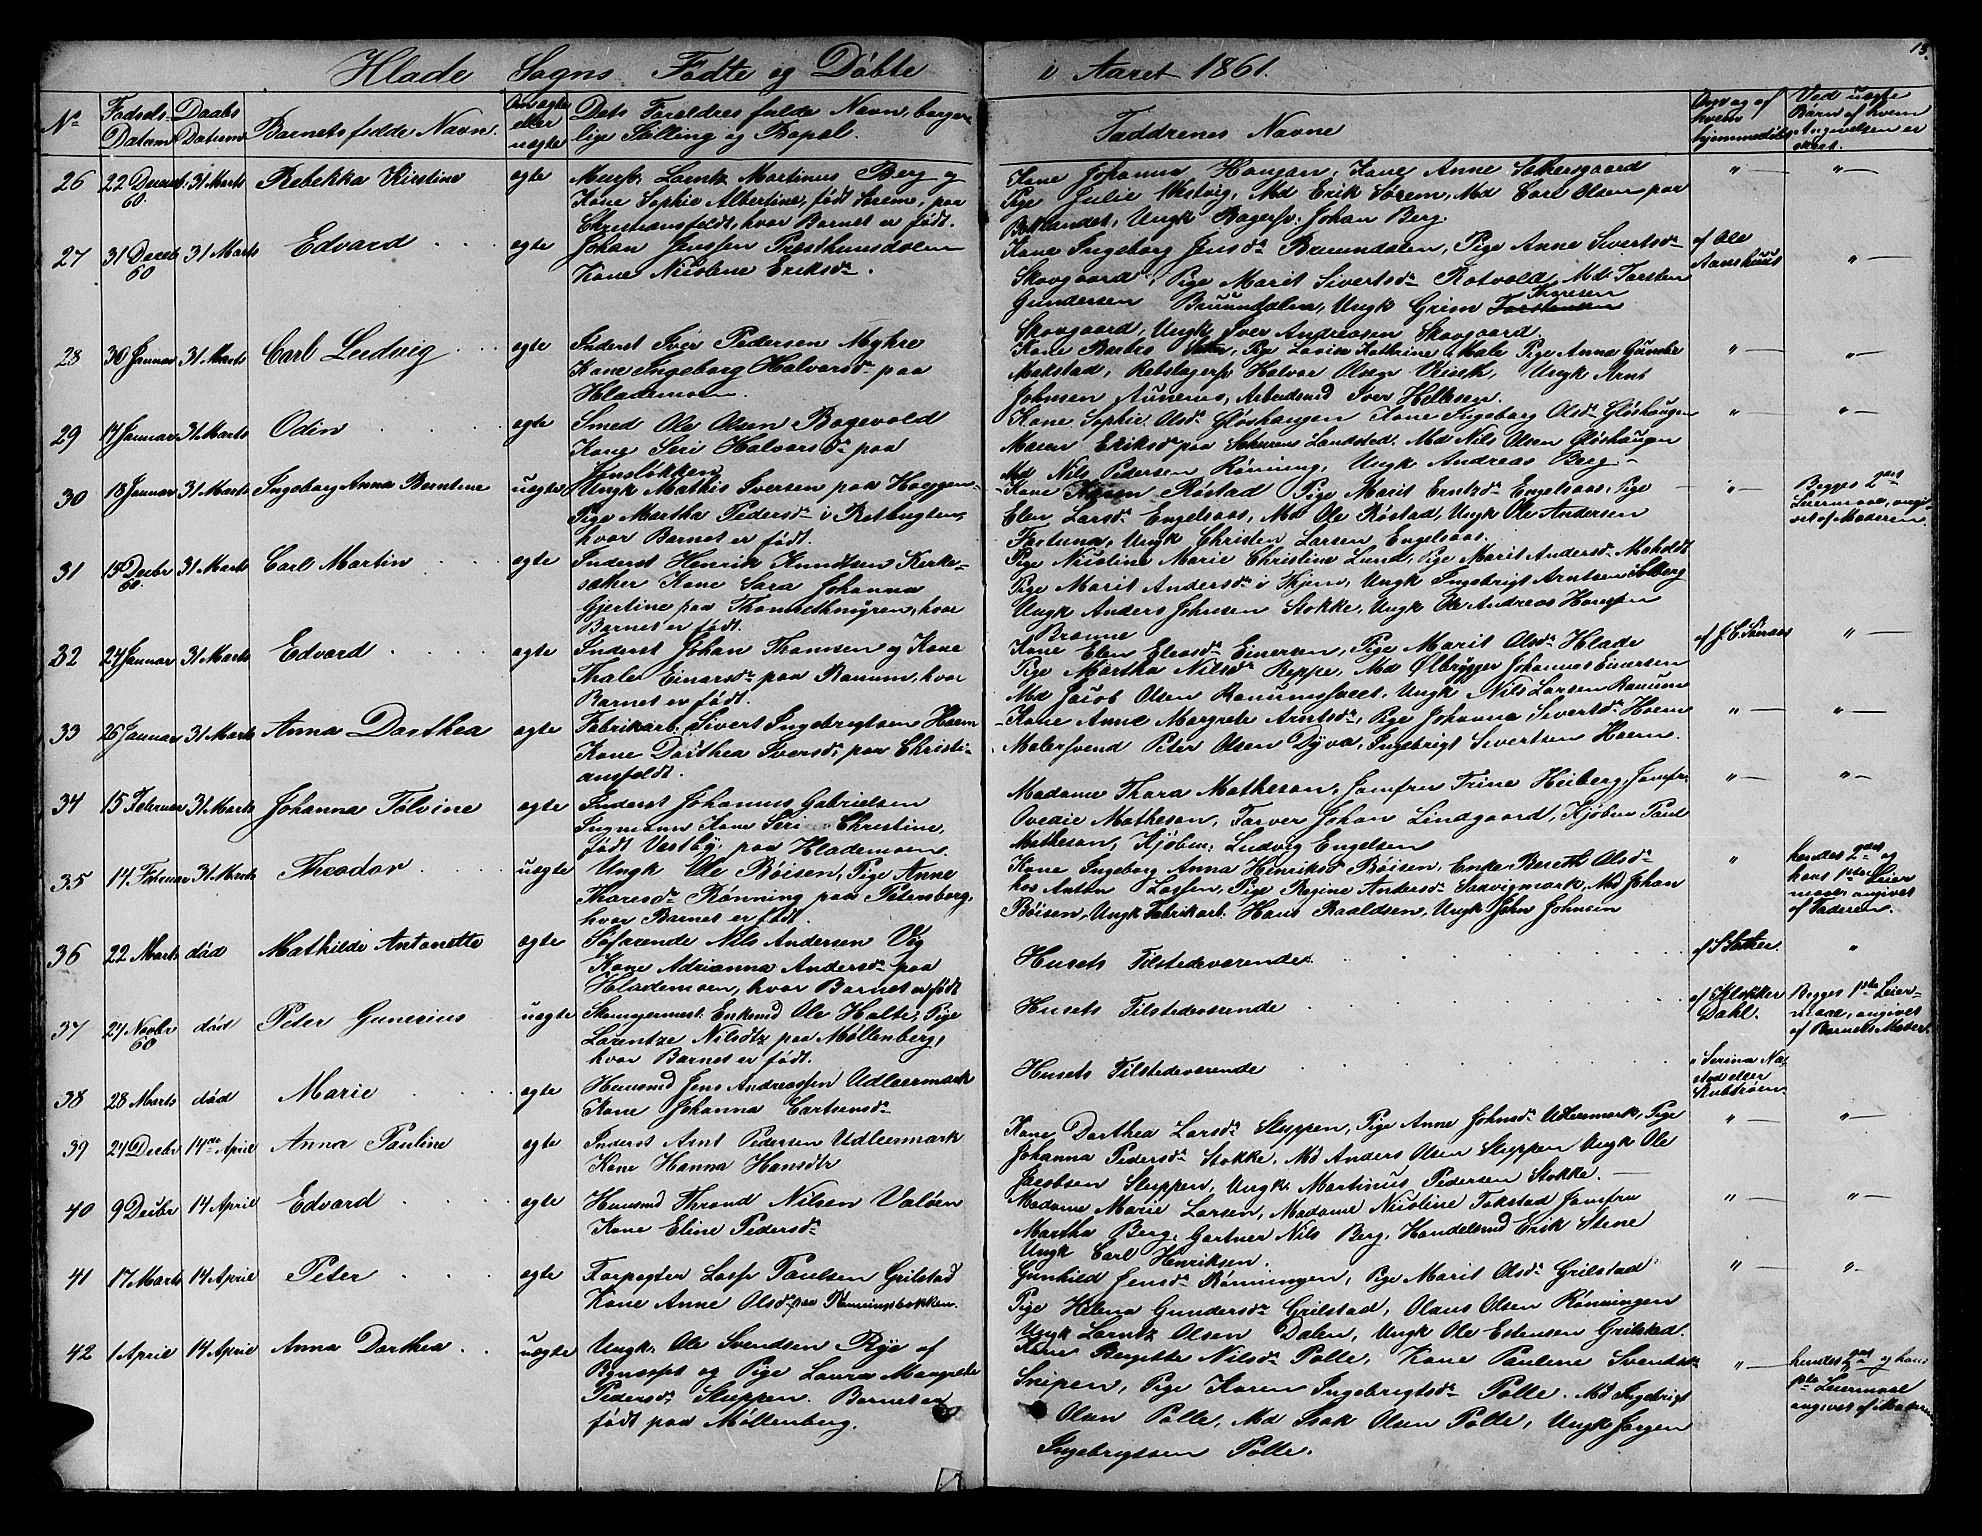 Hlade Sogns Fødte og Døbte i Aaret 1861.
13.
No
Fødsels Datum
Daabs Datum
Barnets fulde Navn.
Om ægte eller uægte
Dets Forældres fulde Navn, borgerlige Stilling og Bopæl.
Faddrenes Navne
Om og af hvem hjemmedøbt
Ved uægte Børn af hvem Angivelsen er skeet.
26 22 Decemb. 60 31 Marts Rebekka Kirstine ægte
Kone Sophie Albertine, født Sreme, paa
Christiansfeldt, hvor Barnet er født.
Kone Johanna Haugan, Kone Anne Sættersgaard
Pige Julie Vestvig, Md Erik Sørem, Md Carl Olsen paa
Baklandet, Ungk Johan Berg.
" — " —
27 31 Deceb 60 31 Marts Edvard ægte
Johan Jenssen Præsthuusdalen
Kone Nicoline Eriksdr.
Kone Ingeborg Jensdr Bruundalen, Pige Anne Sivertsdr
Skovgaard, Pige Marit Sivertsdr Rotvold, Md. Torsten
Gundersen Bruundalen, Ungk Grim Torstensen Thoresen
Skovgaard, Ungk Iver Andreasen Skovgaard.
af Ole Aanshuus
" —
28 30 Januar 31 Marts Carl Ludvig ægte
Inderst Iver Pedersen Myhre
Kone Ingeborg Halvorsdr paa
Hlademoen.
Kone Barbro, Pige Lovise Kathrine Male Pige Anna Gunelie
Makstad, Rebslagersv Halvor Olsen Viisik, Ungk Arnt
Johnsen Aunerus, Arbeidsmd Iver Helksen.
" — " —
29 17 Januar 31 Marts Odin ægte
Smed Ole Olsen Bagevold
Kone Siri Halvorsdr paa
Kone Sophie Olsdr Gløshaugen Kone Ingeborg Olsdr Gløshaugen
Maren Eriksdr paa Landsted, Md Nils Olsen Gløshaugen
Md Nils Pedersen Rønning, Ungk Andreas Berg —
" — " —
30 18 Januar 31 Marts Ingeborg Anna Berntine uægte
Ungk Mathis Iversen paa Hoeggen
Pige Martha Pedersdr i Rotbugten,
hvor Barnet er født.
Kone Karen Røstad Pige Marit Erntsdr Engelsaas, Pige
Elen Larsdr Engelsaas, Md Ole Røstad, Ungk Ole Andersen
Fortuna, Ungk Christen Larsen Engelsaas.
" —
Begges 2det Leiermaal, angivet af Moderen.
31 15 Decbr 60. 31 Marts Carl Martin ægte
Inderst Henrik Knudtsen Kirkesæker Kone Sara Johanna
Gjertine paa Thomsethmyren, hvor
Barnet er født.
Pige Nicoline Marie Christine Lund, Pige Marit Andersdr Moholdt
Pige Marit Andersdr i Tkjem, Ungk Ingebrigt Arntsen Solberg
Ungk Anders Johnsen Stokke, Ungk Ole Andreas Hansen
Brønne
32 24 Januar 31 Marts Edvard ægte
Inderst Johan Thomsen og Kone
Thale Einarsdr paa Ranum, hvor
Barnet er født.
Kone Elen Einersen, Pige Marit Olsdr Hlade
Pige Martha Nilsdr Reppe, Md Ølbrygger Johannes Einersen
Md Jacob Olsen Ranumsfaret, Ungk Nils Larsen Ranum
" —
33 26 Januar 31 Marts Anna Dorthea ægte
Fabrikarb. Sivert Ingebrigtsen Hoem
Kone Dorthea Iversdr, paa Christiansfeldt.
Kone Anne Margrete Arntsdr, Pige Johanna Sivertsdr Hoem
Malersvend Peter Olsen Dyva, Ingebrigt Sivertsen Hoem.
" — " —
34 15 Februar 31 Marts Johanna Tolvine ægte
Inderst Johannes Gabrielsen
Ingmann Kone Siri Christine,
født Vestby, paa Hlademoen.
Madame Thora Matheson, Jomfru Trine Heiberg, Jomfr.
Ovedie Matheson, Farver Johan Lindgaard, Kjøbm Paul
Matheson, Kjøbm. Ludvig Engelsen
" — " —
35 14 Februar 31 Marts Theodor uægte
Ungk Ole Bøisen, Pige Anne
Thoresdr Rønning paa Petersborg,
hvor Barnet er født.
Kone Ingeborg Anna Henriksd Bøisen, Enke Bereth Olsdr
hos Anton Lossen, Pige Regine Andersdr Saxvigmark, Md Johan
Bøisen, Ungk Fabrikarb. Hans Raaldsen, Ungk John Johnsen
"
hendes 2det og hans 1ste Leiermaal, angivet af Faderen.
36 22 Marts død Mathilde Antonette ægte
Søfarende Nils Andersen Vig
Kone Adrianna Andersdr paa
Hlademoen, hvor Barnet er født
Husets Tilstedeværende.
"
37 27 Novbr 60 død Peter Gunerius uægte
Enkemd Ole Holte, Pige
Lorentze Nilsdtr paa Møllenberg,
hvor Barnet er født.
Husets Tilstedeværende
af Klokker Dahl.
Begges 1ste Leiermaal, angivet af Barnets Moder.
38 28 Marts død Marie ægte
Huusmd Jens Andreassen Udleermark
Kone Johanna Carlsensdr
Husets Tilstedeværende
39 24 Decbr 14de April Anna Pauline ægte
Inderst Arnt Pedersen Udleermark
Kone Hanna Hansdtr
Kone Dorthea Larsdr Sluppen, Pige Anne Johnsdr Udleermark, Pige
Johanna Pedersdr Stokke, Md Anders Olsen Sluppen Ungk Ole
Jacobsen Sluppen, Ungk. Martinus Pedersen Stokke. —
" — " —
40 9 Decbr 14 April Edvard ægte
Huusmd Thrond Nilsen Valøen
Kone Eline Pedersdr
Madame Marie Larsen, Madame Nicoline Takstad Jomfru
Martha Berg, Gartner Nils Berg, Handelsmd Erik Stene
Ungk Carl Henriksen.
" — " —
41 17 Marts 14 April Peter ægte
Forpagter Lasse Paulsen Grilstad
Kone Anne Olsdr paa Rønningsbakken.
Gunhild Jensdr Rønningen, Pige Marit Olsdr Grilstad
Pige Helena Gundersdr Grilstad, Olaus Olsen Rønningen
Ungk Lorntz Olsen Dalen, Ungk Ole Estensen Grilstad.
" — " —
42 1 April 14 April Anna Dorthea uægte
Ungk. Ole Svendsen Rye af
Bynæsset og Pige Laura Margrete
Pedersdr Sluppen. Barnet er
født paa Møllenberg.
Kone Bergitte Nilsdr Polle, Kone Pauline Svendsdr
Snipen, Pige Karen Ingebrigtsdr Polle. Md Ingebrigt
Olsen Polle, Md Isak Olsen Polle, Ungk Jørgen
Ingebrigtsen Polle.
" —
hendes 2det og hans 1ste Leiermaal angivet af Moderen.